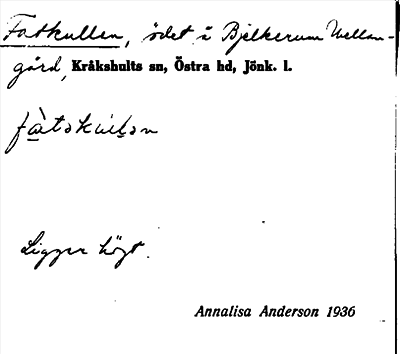 Fatkullen, ödet. å Bjelkerum Mellan-
gård, Kråkshults sn, Östra hd, Jönk. l.
fàtəkulən
Ligger högt.
Annalisa Anderson 1936